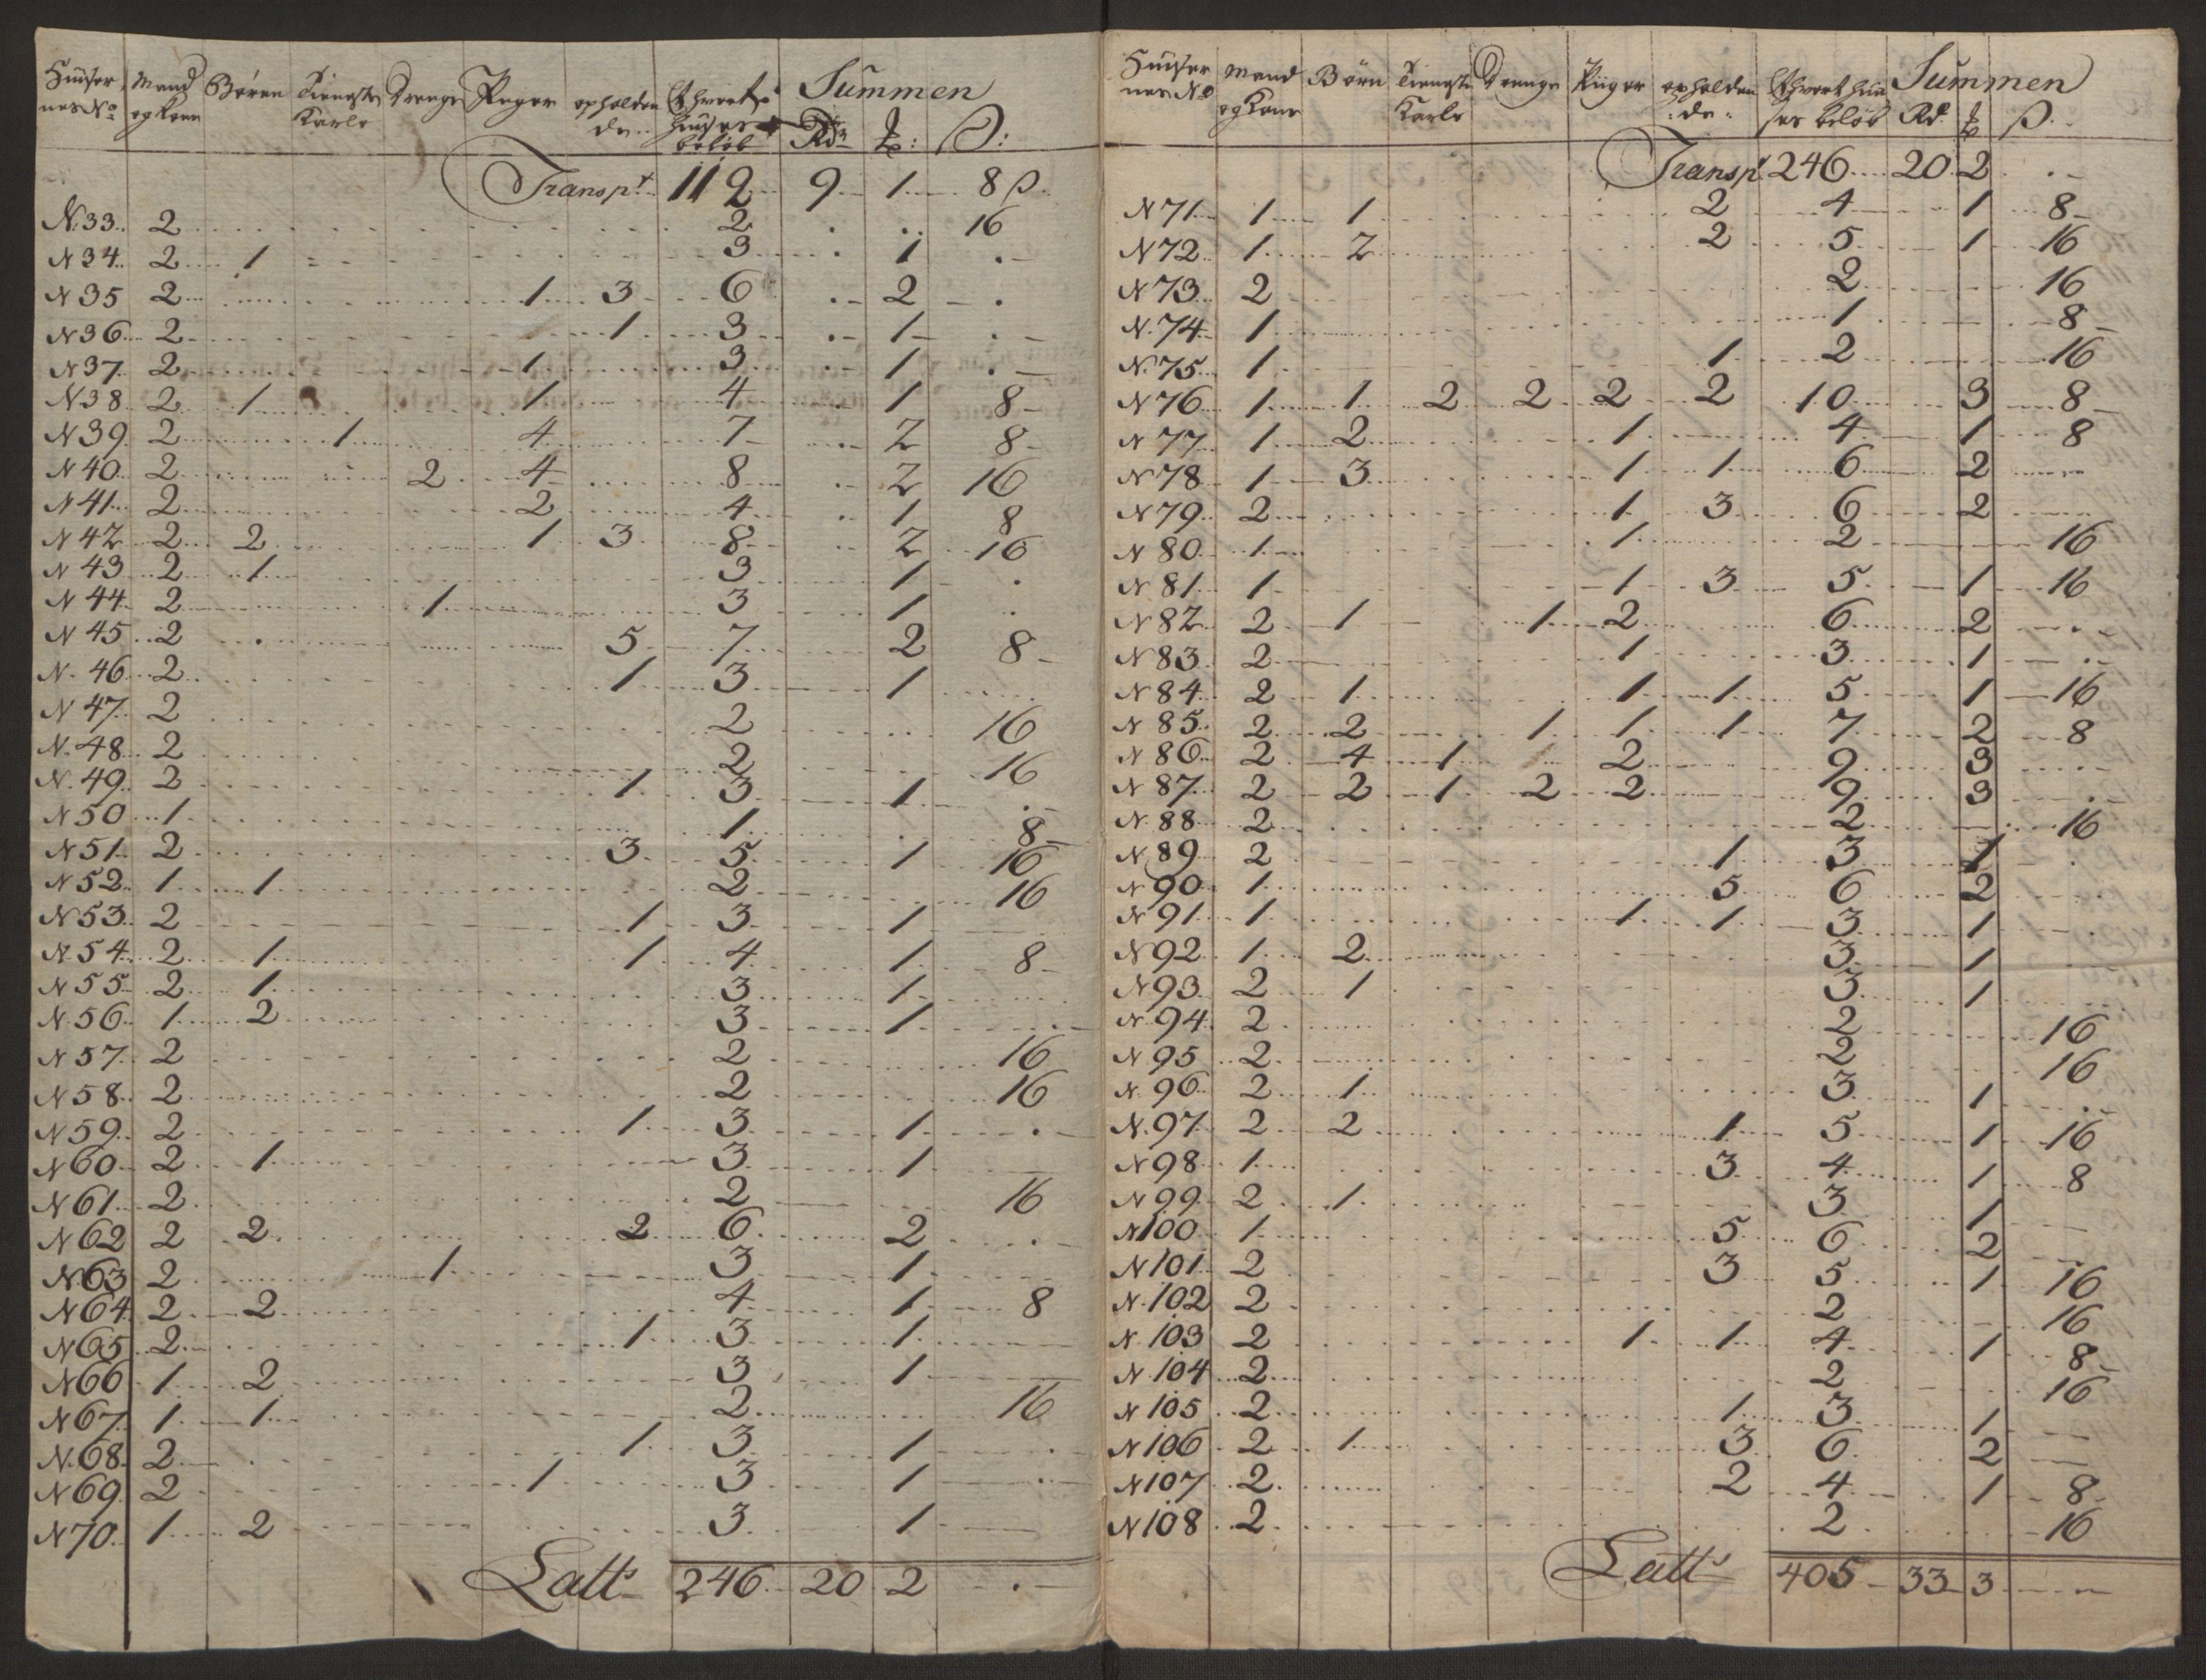 Huuser nes No | Mand og Kone | Børen | Tieneste Karle | Drenge | Piger | opholden de | Ethvert Huuses beløb | Summen Rdr | ꝑ: | β:
Transpt 112 9 1 8 β.
N. 33 2 2 16
N 34 2 1 3 1
N 35 2 1 3 6 2
N 36 2 1 3 1
N 37 2 1 3 1
N 38 2 1 1 4 1 8
N 39 2 1 4 7 2 8
N 40 2 2 4 8 2 16
N 41 2 2 4 1 8
N 42 2 2 1 3 8 2 16
N 43 2 1 3 1
N 44 2 1 3 1
N 45 2 5 7 2 8
N. 46 2 1 3 1
N 47 2 2 16
N. 48 2 2 16
N. 49 2 1 3 1
N 50 1 1 8
N 51 2 3 5 1 16
N 52 1 1 2 16
N 53 2 1 3 1
N. 54 2 1 1 4 1 8
N 55 2 1 3 1
N. 56 1 2 3 1
N 57 2 2 16
N 58 2 2 16
N 59 2 1 3 1
N 60 2 1 3 1
N 61 2 2 16
N 62 2 2 2 6 2
N 63 2 1 3 1
N 64 2 2 4 1 8
N 65 2 1 3 1
N 66 1 2 3 1
N 67 1 1 2 16
N. 68 2 1 3 1
N 69 2 1 3 1
N 70 1 2 3 1
Latt 246 20 2
Huuser nes No | Mand og Kone | Børn | Tieneste Karle | Drenge | Piiger | opholden de | Ethvert Huu ses beløb | Summen Rd | ꝑ | β.
Transpt 246 20 2
N 71 1 1 2 4 1 8
N 72 1 2 2 5 1 16
N 73 2 2 16
N. 74 1 1 8
N. 75 1 1 2 16
N 76 1 1 2 2 2 2 10 3 8
N 77 1 2 1 4 1 8
N 78 1 3 1 1 6 2
N 79 2 1 3 6 2
N 80 1 1 2 16
N 81 1 1 3 5 1 16
N 82 2 1 1 2 6 2
N 83 2 1 3 1
N 84 2 1 1 1 5 1 16
N 85 2 2 1 1 1 7 2 8
N 86 2 4 1 2 9 3
N 87 2 2 1 2 2 9 3
N. 88 2 2 16
N. 89 2 1 3 1
N 90 1 5 6 2
N 91 1 1 1 3 1
N 92 1 2 3 1
N 93 2 1 3 1
N. 94 2 2 16
N 95 2 2 16
N. 96 2 1 3 1
N. 97 2 2 1 5 1 16
N 98 1 3 4 1 8
N 99 2 1 3 1
N 100 1 5 6 2
N 101 2 3 5 1 16
N. 102 2 2 16
N. 103 2 1 1 4 1 8
N. 104 2 2 16
N 105 2 1 3 1
N 106 2 1 3 6 2
N 107 2 2 4 1 8
N 108 2 2 16
Latt 405 33 3